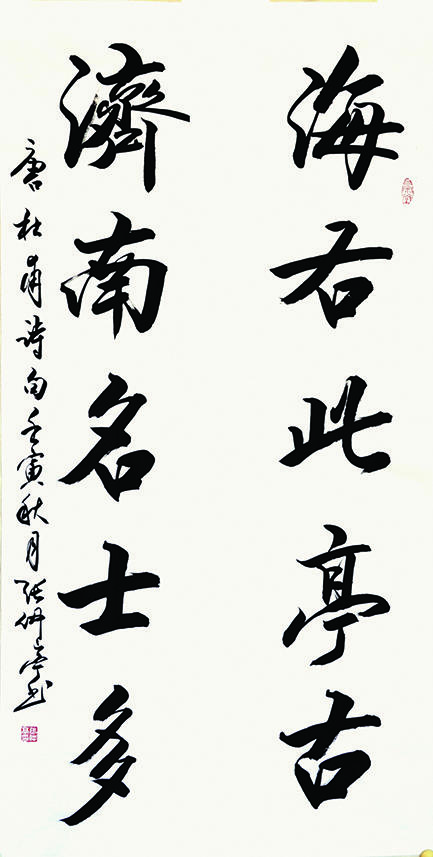 海右此亭古
濟南名士多
唐杜甫詩句壬寅秋月張仲亭书